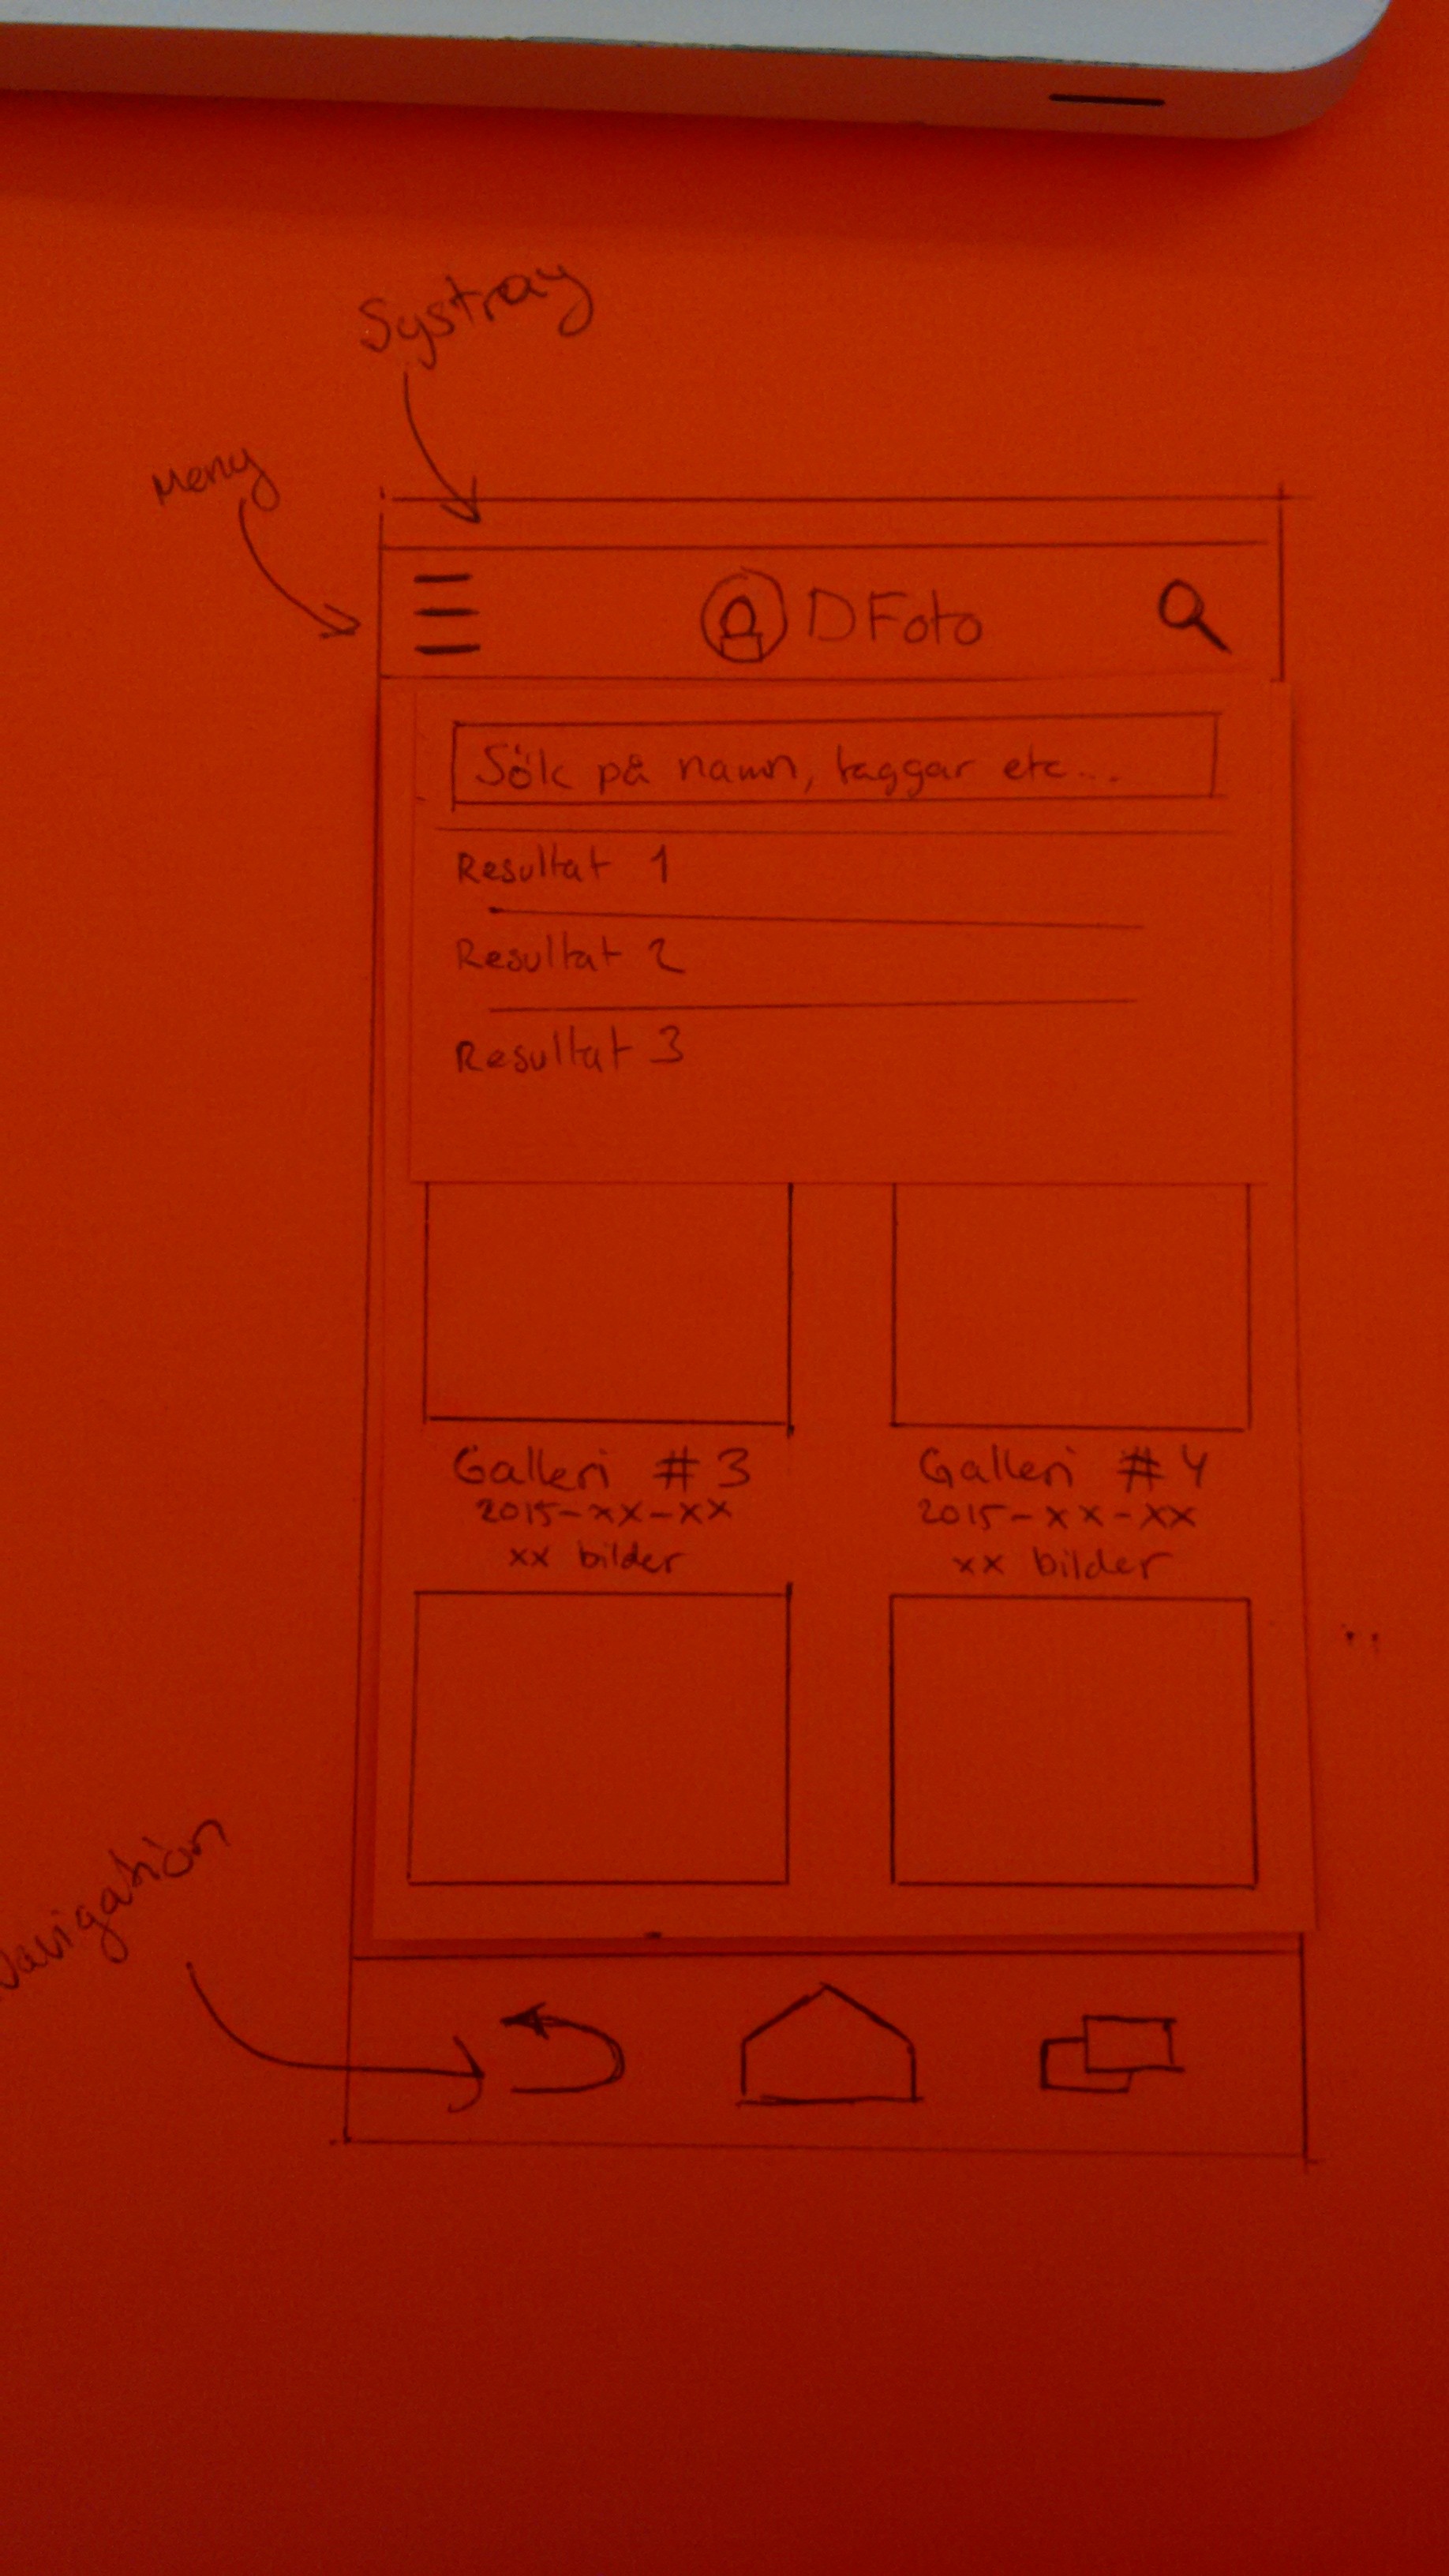 Systray
Meny
DFoto
Sök på namn, taggar etc...
Resultat 1
Resultat 2
Resultat 3
Galleri #3
2015-xx-xx
xx bilder
Galleri #4
2015-xx-xx
xx bilder
Navigation